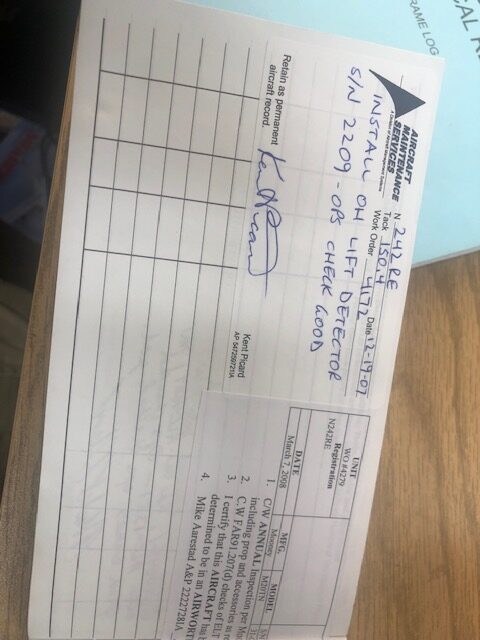 AIRCRAFT
MAINTENANCE
SERVICES
N 242RE
Tack 150.4
Work Order 4172 Date 12-19-07
INSTALL OH LIFT DETECTOR
S/N 2209 - OPS CHECK GOOD
Retain as permanent
aircraft record.
Kent Picard
Kent Picard
AP 547250721IA
UNIT
WO #4279
Registration
N242RE
DATE
March 7, 2008
MFG.
Mooney
MODEL
1. C/W ANNUAL Inspection per
including prop and accessories as
2. C.W FAR91.207(d) checks of ELT
3. I certify that this AIRCRAFT has
determined to be in an AIRWORT
4. Mike Aarestad A&P 2222728IA
RAME LOG